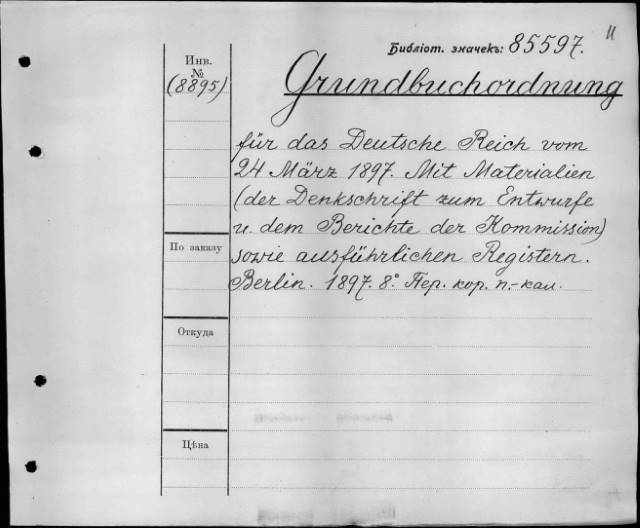 11
Библіот. значекъ: 85597.
Инв.
№
(8895)
Grundbuchordnung
für das Deutsche Reich vom
24 März 1897. Mit Materialien
(der Denkschrift zum Entwurfe
u. dem Berichte der Kommission)
По заказу
sowie ausführlichen Registern.
Berlin. 1897. 8.° Пер. кор. п.-кал.
Откуда
Цѣна